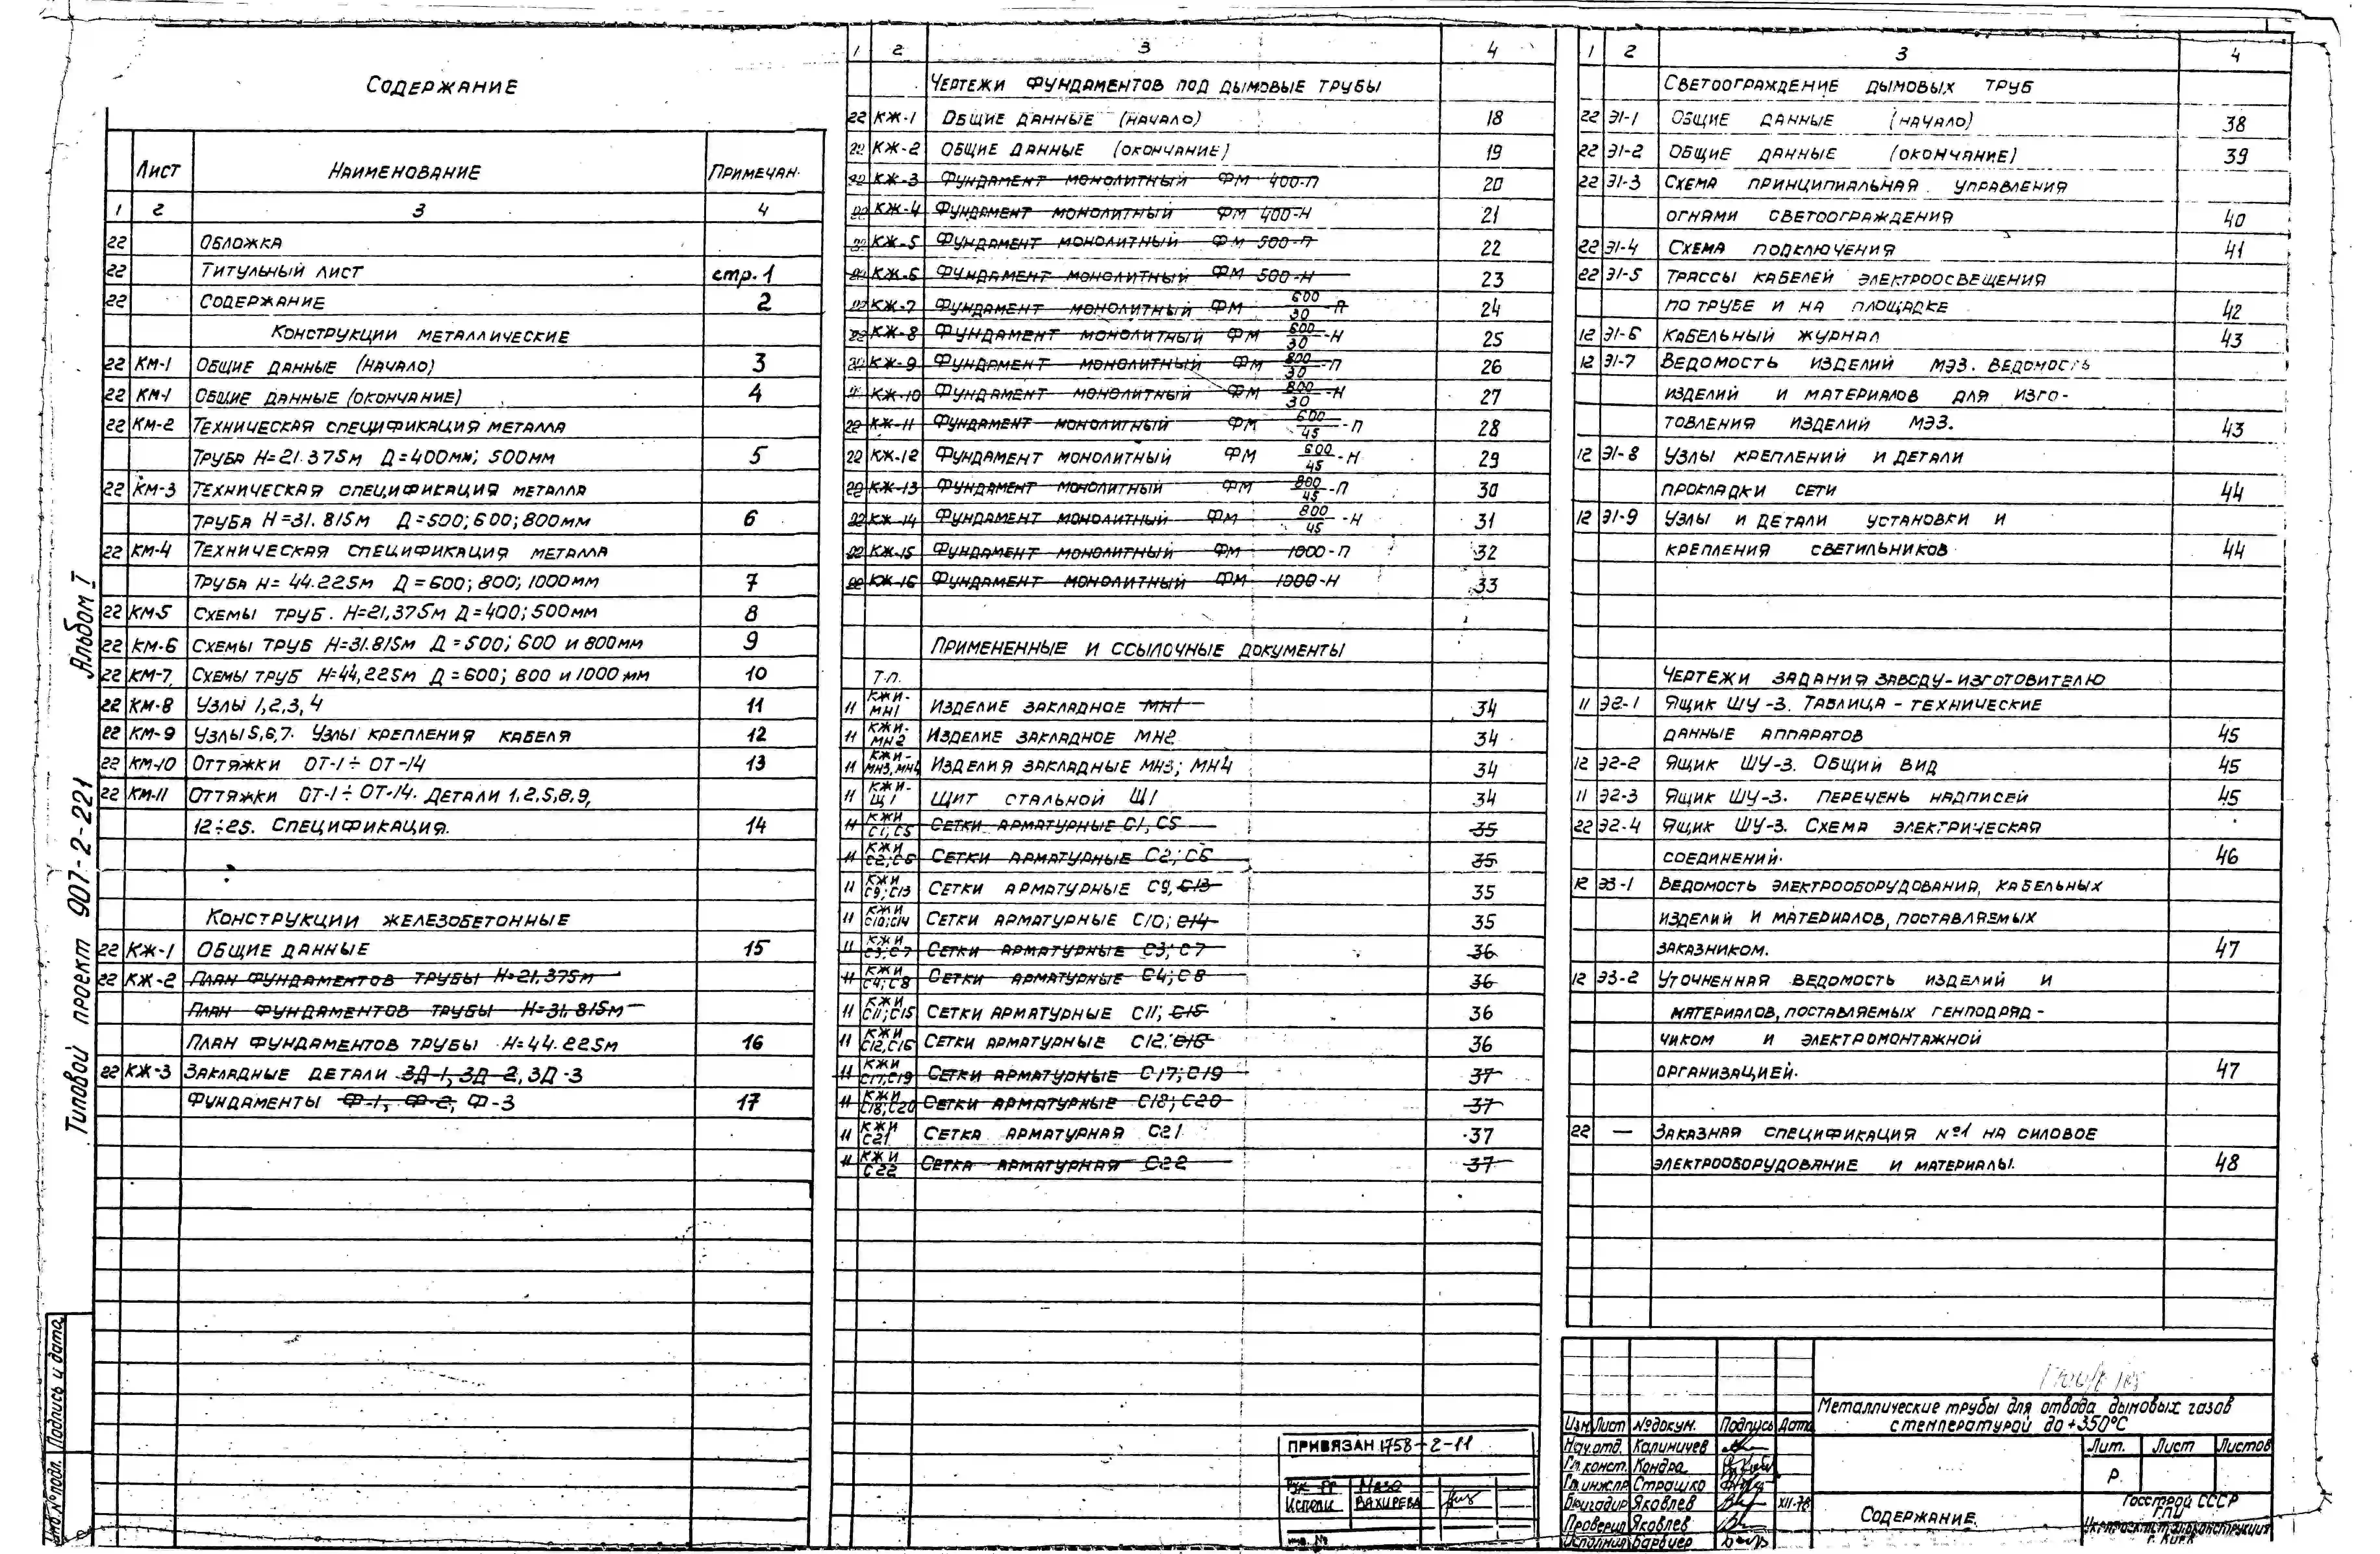 Содержание
Лист Наименование Примечан.
1 2 3 4
22 Обложка
22 Титульный лист стр.1
22 Содержание 2
Конструкции металлические
22 КМ-1 Общие данные (начало) 3
22 КМ-1 Общие данные (окончание) 4
22 КМ-2 Техническая спецификация металла
Труба Н=21.375м Д=400мм; 500мм 5
22 КМ-3 Техническая спецификация металла
труба Н=31.815м Д=500; 600; 800мм 6
22 КМ-4 Техническая спецификация металла
Труба Н=44.225м Д=600; 800; 1000мм 7
22 КМ-5 Схемы труб. Н=21,375м Д=400; 500мм 8
22 КМ-6 Схемы труб Н=31.815м Д=500; 600 и 800мм 9
22 КМ-7 Схемы труб Н=44,225м Д=600; 800 и 1000мм 10
22 КМ-8 Узлы 1,2,3,4 11
22 КМ-9 Узлы 5,6,7. Узлы крепления кабеля 12
22 КМ-10 Оттяжки ОТ-1÷ОТ-14 13
22 КМ-11 Оттяжки ОТ-1÷ОТ-14. Детали 1,2,5,8,9,
12÷25. Спецификация. 14
Конструкции железобетонные
22 КЖ-1 Общие данные 15
22 КЖ-2 План фундаментов трубы Н=21,375м
План фундаментов трубы Н=31,815м
План фундаментов трубы Н=44.225м 16
22 КЖ-3 Закладные детали ЗД-1, ЗД-2, ЗД-3
Фундаменты Ф-1, Ф-2, Ф-3 17
Типовой проект 907-2-221 Альбом I
Подпись и дата
Инв.№ подл.
1 2 3 4
Чертежи фундаментов под дымовые трубы
22 КЖ-1 Общие данные (начало) 18
22 КЖ-2 Общие данные (окончание) 19
22 КЖ-3 Фундамент монолитный ФМ 400-П 20
22 КЖ-4 Фундамент монолитный ФМ 400-Н 21
22 КЖ-5 Фундамент монолитный ФМ 500-П 22
22 КЖ-6 Фундамент монолитный ФМ 500-Н 23
22 КЖ-7 Фундамент монолитный ФМ 600/30-П 24
22 КЖ-8 Фундамент монолитный ФМ 600/30-Н 25
22 КЖ-9 Фундамент монолитный ФМ 800/30-П 26
22 КЖ-10 Фундамент монолитный ФМ 800/30-Н 27
22 КЖ-11 Фундамент монолитный ФМ 600/45-П 28
22 КЖ-12 Фундамент монолитный ФМ 600/45-Н 29
22 КЖ-13 Фундамент монолитный ФМ 800/45-П 30
22 КЖ-14 Фундамент монолитный ФМ 800/45-Н 31
22 КЖ-15 Фундамент монолитный ФМ 1000-П 32
22 КЖ-16 Фундамент монолитный ФМ 1000-Н 33
Примененные и ссылочные документы
Т.п.
11 КЖИ-МН1 Изделие закладное МН1 34
11 КЖИ-МН2 Изделие закладное МН2 34
11 КЖИ-МН3, МН4 Изделия закладные МН3; МН4 34
11 КЖИ-Щ1 Щит стальной Щ1 34
11 КЖИ С1; С5 Сетки арматурные С1, С5 35
11 КЖИ С2; С6 Сетки арматурные С2; С6 35
11 КЖИ С9; С13 Сетки арматурные С9, С13 35
11 КЖИ С10; С14 Сетки арматурные С10; С14 35
11 КЖИ С3; С7 Сетки арматурные С3; С7 36
11 КЖИ С4; С8 Сетки арматурные С4; С8 36
11 КЖИ С11; С15 Сетки арматурные С11; С15 36
11 КЖИ С12, С16 Сетки арматурные С12; С16 36
11 КЖИ С17, С19 Сетки арматурные С17; С19 37
11 КЖИ С18; С20 Сетки арматурные С18; С20 37
11 КЖИ С21 Сетка арматурная С21 37
11 КЖИ С22 Сетка арматурная С22 37
ПРИВЯЗАН 1758-2-11
Рук гр Мазо
Исполн Вахирева
Инв. №
1 2 3 4
Светоограждение дымовых труб
22 Э1-1 Общие данные (начало) 38
22 Э1-2 Общие данные (окончание) 39
22 Э1-3 Схема принципиальная управления
огнями светоограждения 40
22 Э1-4 Схема подключения 41
22 Э1-5 Трассы кабелей электроосвещения
по трубе и на площадке 42
12 Э1-6 Кабельный журнал 43
12 Э1-7 Ведомость изделий МЭЗ. Ведомость
изделий и материалов для изго-
товления изделий МЭЗ. 43
12 Э1-8 Узлы креплений и детали
прокладки сети 44
12 Э1-9 Узлы и детали установки и
крепления светильников 44
Чертежи задания заводу-изготовителю
11 Э2-1 Ящик ШУ-3. Таблица - технические
данные аппаратов 45
12 Э2-2 Ящик ШУ-3. Общий вид 45
11 Э2-3 Ящик ШУ-3. Перечень надписей 45
22 Э2-4 Ящик ШУ-3. Схема электрическая
соединений. 46
12 Э3-1 Ведомость электрооборудования, кабельных
изделий и материалов, поставляемых
заказником. 47
12 Э3-2 Уточненная ведомость изделий и
материалов, поставляемых генподряд-
чиком и электромонтажной
организацией. 47
22 — Заказная спецификация №1 на силовое
электрооборудование и материалы. 48
Металлические трубы для отвода дымовых газов
с температурой до +350°С
Изм. Лист № докум. Подпись Дата
Нач.отд. Калиничев
Гл.конст. Кондра
Гл.инж.пр Страшко
Бригадир Яковлев XII-78
Проверил Яковлев
Исполнил Барбиер
Лит. Лист Листов
Р
Содержание
Госстрой СССР
ГПИ
Укрпроектстальконструкция
г. Киев